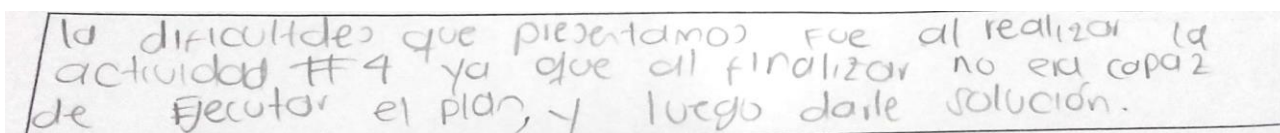 la dificultdes que presentamos fue al realizar la
actividad #4 ya que al finalizar no era capaz
de Ejecutar el plan, y luego darle solución.